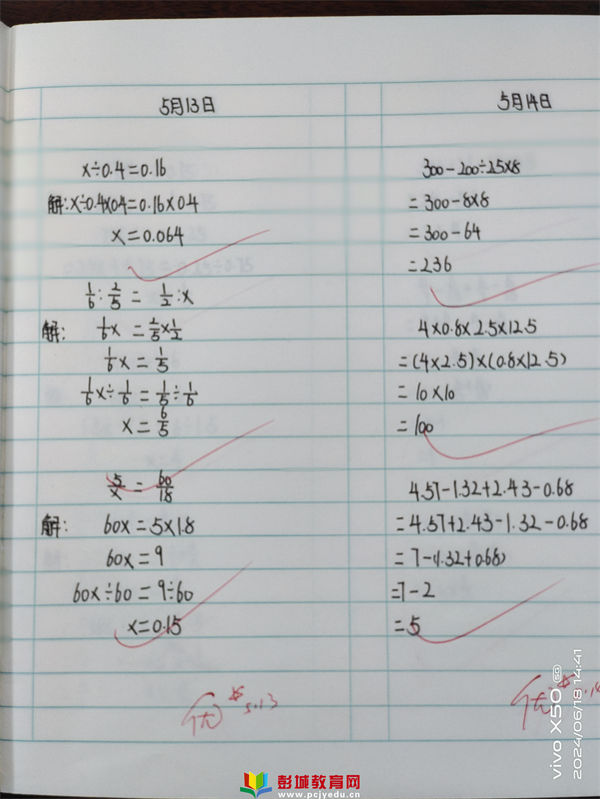 5月13日
x÷0.4=0.16
解:x÷0.4×0.4=0.16×0.4
x=0.064
1/6:2/5=1/2:x
解: 1/6x=2/5×1/2
1/6x=1/5
1/6x÷1/6=1/5÷1/6
x=6/5
5/x=60/1.8
解: 60x=5×1.8
60x=9
60x÷60=9÷60
x=0.15
优 5.13
5月14日
300-200÷25×8
=300-8×8
=300-64
=236
4×0.8×2.5×12.5
=(4×2.5)×(0.8×12.5)
=10×10
=100
4.57-1.32+2.43-0.68
=4.57+2.43-1.32-0.68
=7-(1.32+0.68)
=7-2
=5
优
vivo X50 5G
2024/06/18 14:41
彭城教育网
www.pcjyedu.cn